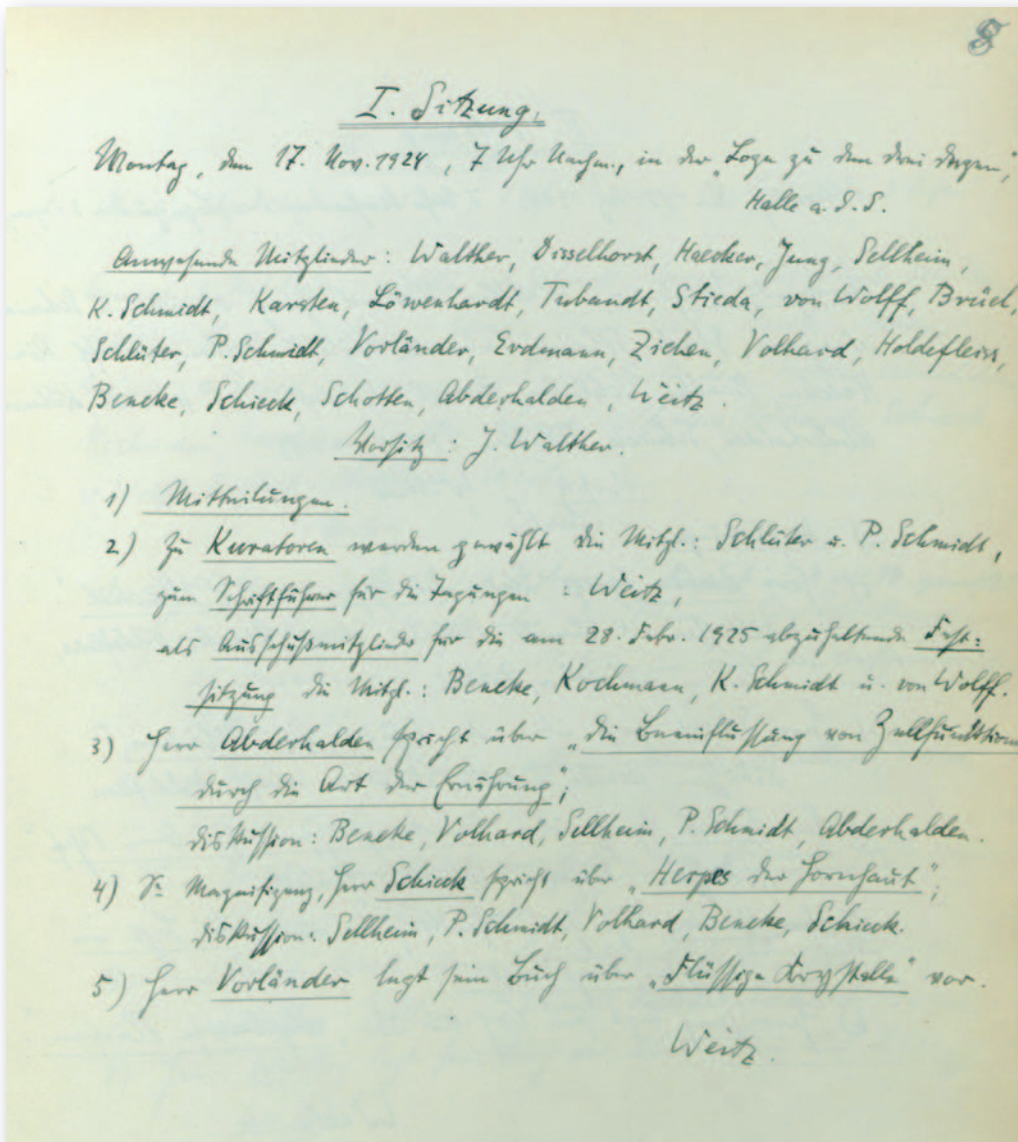 8
I. Sitzung.
Montag, den 17. Nov. 1924, 7 Uhr Nachm., in der „Loge zu den drei Degen",
Halle a. d. S.
Anwesende Mitglieder: Walther, Disselhorst, Haecker, Jung, Sellheim,
K. Schmidt, Karsten, Löwenhardt, Tubandt, Stieda, von Wolff, Brüel,
Schlüter, P. Schmidt, Vorländer, Erdmann, Ziehen, Volhard, Holdefleiss,
Beneke, Schieck, Schotten, Abderhalden, Weitz.
Vorsitz: J. Walther.
1) Mitteilungen.
2) Zu Kuratoren werden gewählt die Mitgl.: Schlüter u. P. Schmidt,
zum Schriftführer für die Tagungen: Weitz,
als Ausschußmitglieder für die am 28. Febr. 1925 abzuhaltende Fest-
sitzung die Mitgl.: Beneke, Kochmann, K. Schmidt u. von Wolff.
3) Herr Abderhalden spricht über „die Beeinflussung von Zellfunktionen
durch die Art der Ernährung";
Diskussion: Beneke, Volhard, Sellheim, P. Schmidt, Abderhalden.
4) Se Magnifizenz, Herr Schieck spricht über „Herpes der Hornhaut";
Diskussion: Sellheim, P. Schmidt, Volhard, Beneke, Schieck.
5) Herr Vorländer legt sein Buch über „Flüssige Krystalle" vor.
Weitz.